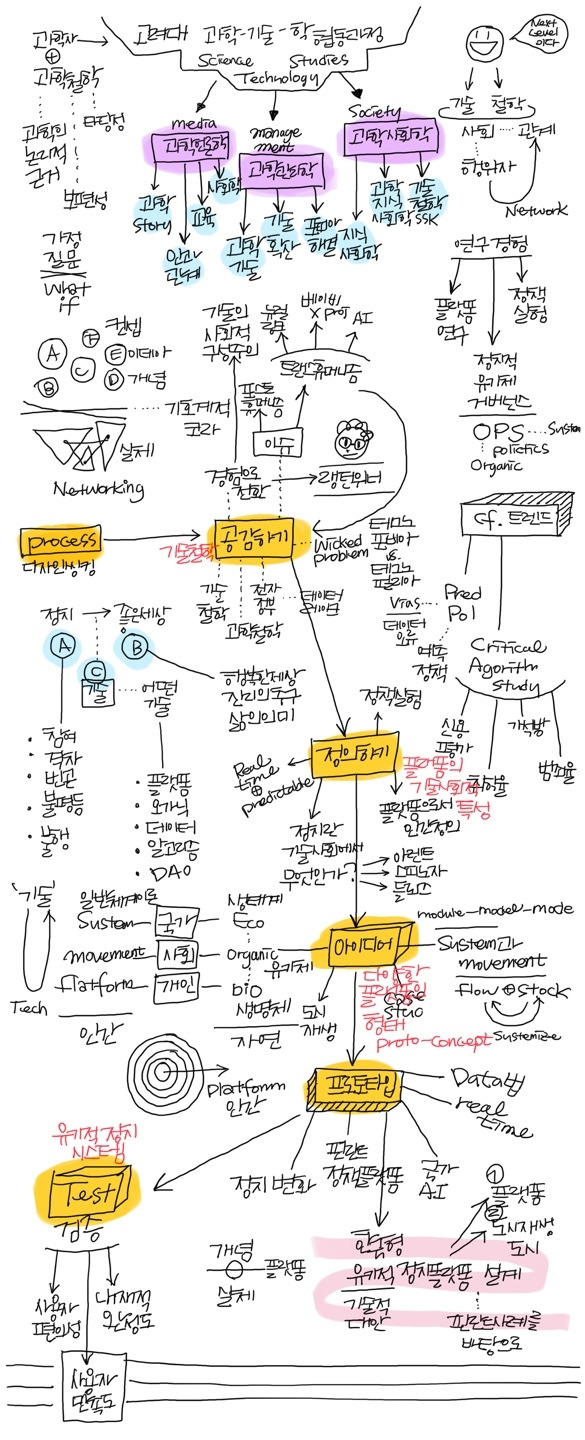 과학자
+
과학철학
과학의
논리적
근거
타당성
보편성
고려대 과학-기술-학 협동과정
Science Studies
Technology
Next
Level
이다
기술 철학
사회 관계
행위자
Network
media
과학언론학
management
과학관리학
Society
과학사회학
과학
story
인과
관계
교육
사회학
과학
기술
기술
확산
해결
지식
사회학
과학
지식
사회학
기술
철학
SSK
가정
질문
What
if
연구 경험
플랫폼
연구
정책
실험
정치적
유기체
거버넌스
OPS
System
politics
Organic
컨셉
A
F
E 이데아
C
B
D 개념
기호계적
코라
실제
Networking
기술의
사회적
구성주의
뉴럴
링크
베이비
X prot
AI
트랜스휴머니즘
포스트
휴머니즘
이슈
경험으로
전환
랭던위너
process
디자인씽킹
기술철학
공감하기
Wicked
problem
테크노
포비아
vs.
테크노
필리아
기술
철학
과학철학
전자
정부
cf. 트렌드
Pred
Pol
Vias
데이터
오류
예측
정책
Critical
Algorithm
study
신용
평가
가석방
범죄율
정치
좋은세상
A
B
C
기술
어떤
기술
행복한세상
진리의추구
삶의의미
• 참여
• 격차
• 빈곤
• 불평등
• 불행
• 플랫폼
• 오가닉
• 데이터
• 알고리즘
• DAO
정책실험
정의하기
Real
time
+
predictable
플랫폼의
기술사회적
특성
플랫폼으로서
인간정의
정치란
기술사회에서
무엇인가?
아렌트
스피노자
들뢰즈
'기술'
Tech
일반체계이론
System 국가
movement 사회
flatform 개인
인간
생태계
Eco
Organic
유기체
bio
생명체
자연
아이디어
module-model-mode
System과
movement
flow + stock
Systemize
도시
재생
다양한
플랫폼의
형태
proto-concept
Platform
인간
프로토타입
Data법
real
time
유기적 정치
시스템
Test
검증
정치 변화
핀란드
정책플랫폼
국가
AI
①
플랫폼
②
도시재생
도시
개념
플랫폼
실제
한국형
유기적 정치플랫폼 설계
기술적
대안
핀란드사례를
바탕으로
사용자
편의성
내재적
완성도
사용자
만족도